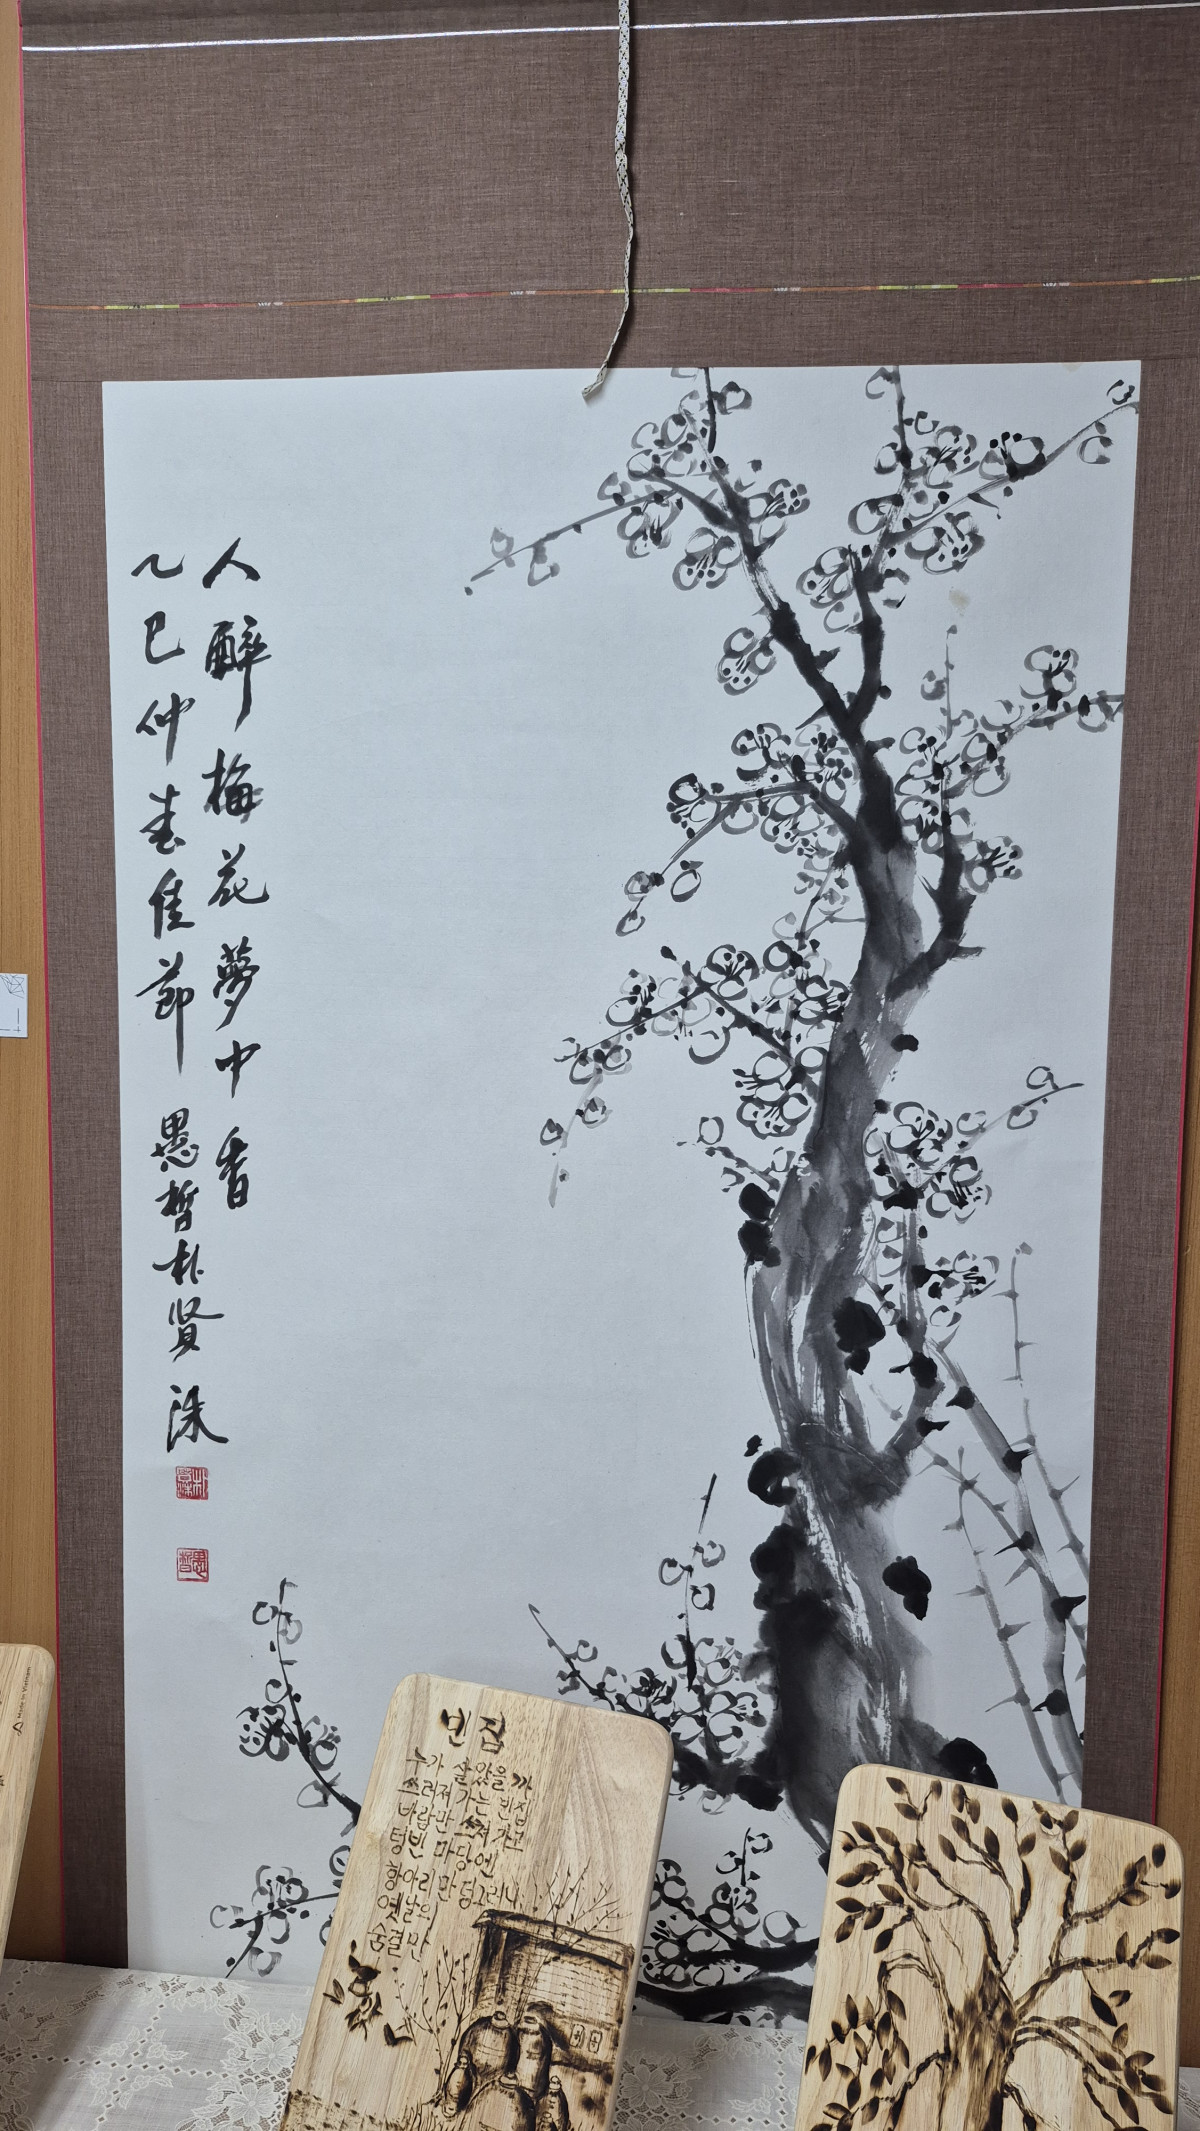 人醉梅花夢中香
乙巳仲春佳節 愚哲朴贤洙
빈집
누가 살았을까
쓰러져가는 빈집
바람만 쓰쳐가고
텅빈 마당엔
항아리만 덩그러니
옛날의
숨결만
Made in Vietnam